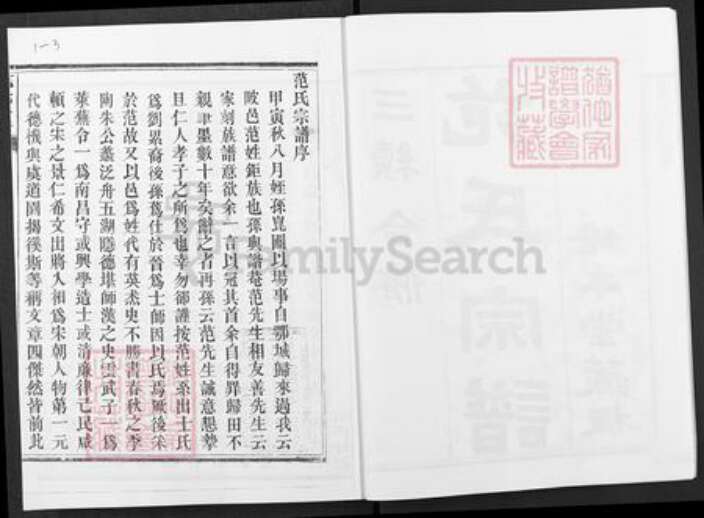 1-3
范氏宗譜序
甲寅秋八月姪孫崑圃以場事自鄂城歸來過我云
陂邑范姓鉅族也孫與諧菴范先生相友善先生云
家刻族譜意欲余一言以冠其首余自得罪歸田不
親筆墨數十年矣辭之者再孫云范先生誠意懇摯
且仁人孝子之所為也幸勿卻謹按范姓系出士氏
為劉累裔後孫蒍仕於晉為士師因以氏焉厥後采
於范故又以邑為姓代有英杰史不勝書春秋之季
陶朱公蠡泛舟五湖隱德堪師漢之史雲武子一為
萊蕪令一為南昌守或興學造士或清廉律己民咸
頓之宋之景仁希文出將入相為宋朝人物第一元
代德機與虞道園揭徯斯等稱文章四傑然皆前此
FamilySearch
范氏宗譜
三續合修